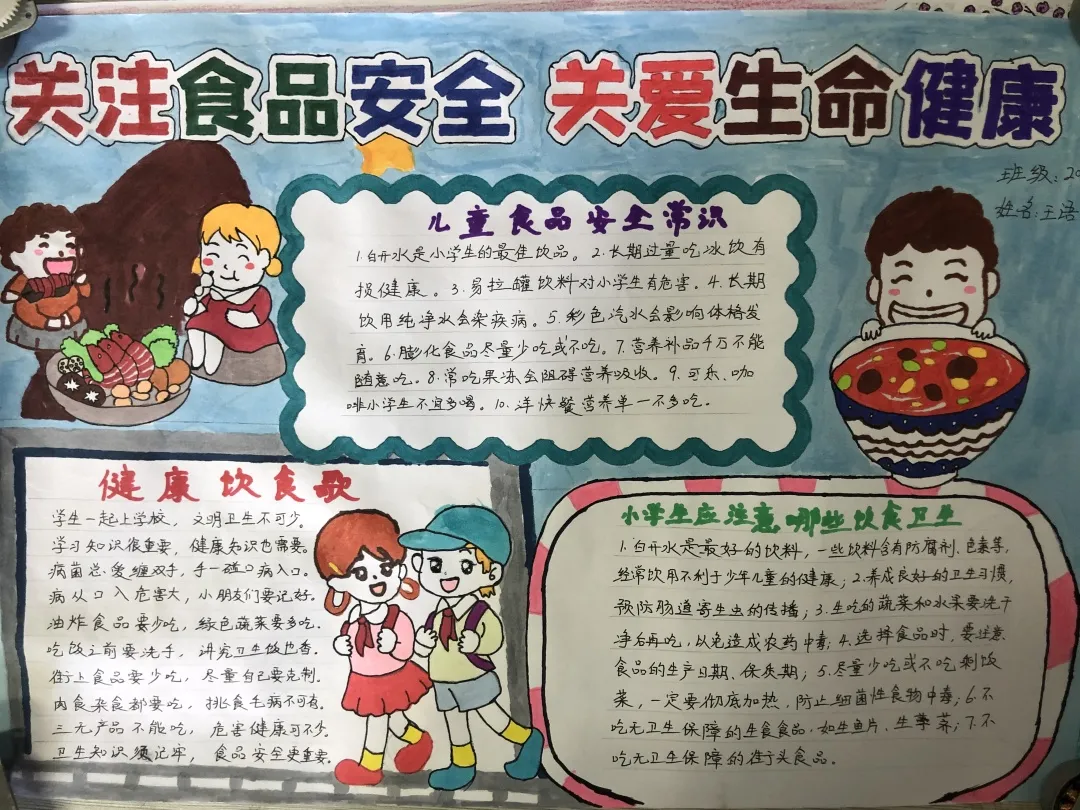 关注食品安全 关爱生命健康
班级:20
姓名:王语
儿童食品安全常识
1.白开水是小学生的最佳饮品。2.长期过量吃冰饮有
损健康。3.易拉罐饮料对小学生有危害。4.长期
饮用纯净水会染疾病。5.彩色汽水会影响体格发
育。6.膨化食品尽量少吃或不吃。7.营养补品千万不能
随意吃。8.常吃果冻会阻碍营养吸收。9.可乐、咖
啡小学生不宜多喝。10.洋快餐营养单一不多吃。
健康饮食歌
学生一起上学校,文明卫生不可少。
学习知识很重要,健康知识也需要。
病菌总爱缠双手,手一碰口病入口。
病从口入危害大,小朋友们要记好。
油炸食品要少吃,绿色蔬菜要多吃。
吃饭之前要洗手,讲究卫生饭也香。
街上食品要少吃,尽量自己要克制。
肉食杂食都要吃,挑食毛病不可有。
三无产品不能吃,危害健康可不少。
卫生知识须记牢,食品安全更重要。
小学生应注意哪些饮食卫生
1.白开水是最好的饮料,一些饮料含有防腐剂、色素等,
经常饮用不利于少年儿童的健康;2.养成良好的卫生习惯,
预防肠道寄生虫的传播;3.生吃的蔬菜和水果要洗干
净后再吃,以免造成农药中毒;4.选择食品时,要注意
食品的生产日期、保质期;5.尽量少吃或不吃剩饭
菜,一定要彻底加热,防止细菌性食物中毒;6.不
吃无卫生保障的生食食品,如生鱼片、生荸荠;7.不
吃无卫生保障的街头食品。